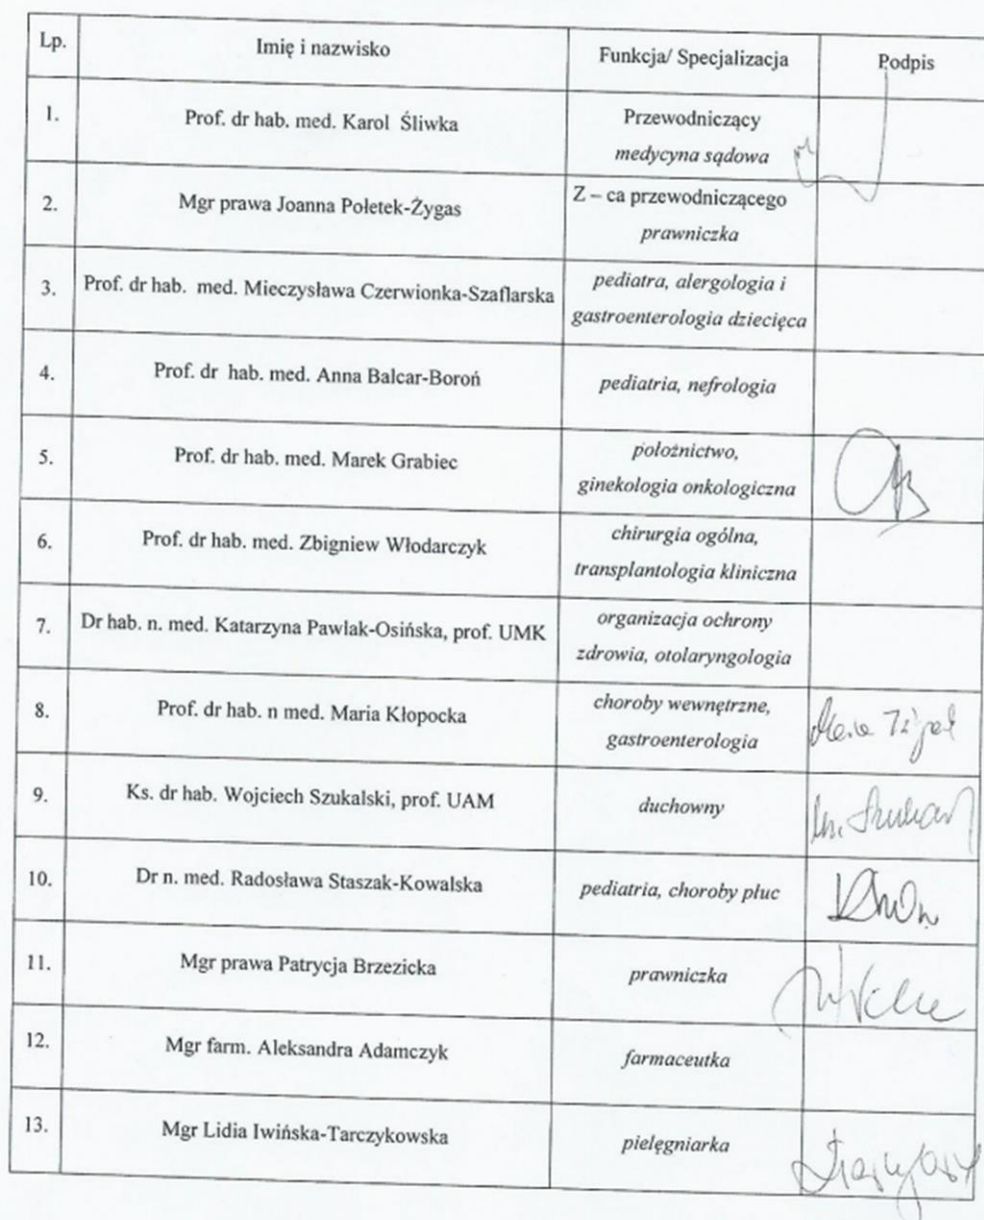 Lp. Imię i nazwisko Funkcja/ Specjalizacja Podpis
1. Prof. dr hab. med. Karol Śliwka Przewodniczący
medycyna sądowa
2. Mgr prawa Joanna Połetek-Żygas Z – ca przewodniczącego
prawniczka
3. Prof. dr hab. med. Mieczysława Czerwionka-Szaflarska pediatra, alergologia i
gastroenterologia dziecięca
4. Prof. dr hab. med. Anna Balcar-Boroń pediatria, nefrologia
5. Prof. dr hab. med. Marek Grabiec położnictwo,
ginekologia onkologiczna
6. Prof. dr hab. med. Zbigniew Włodarczyk chirurgia ogólna,
transplantologia kliniczna
7. Dr hab. n. med. Katarzyna Pawlak-Osińska, prof. UMK organizacja ochrony
zdrowia, otolaryngologia
8. Prof. dr hab. n med. Maria Kłopocka choroby wewnętrzne,
gastroenterologia
9. Ks. dr hab. Wojciech Szukalski, prof. UAM duchowny
10. Dr n. med. Radosława Staszak-Kowalska pediatria, choroby płuc
11. Mgr prawa Patrycja Brzezicka prawniczka
12. Mgr farm. Aleksandra Adamczyk farmaceutka
13. Mgr Lidia Iwińska-Tarczykowska pielęgniarka